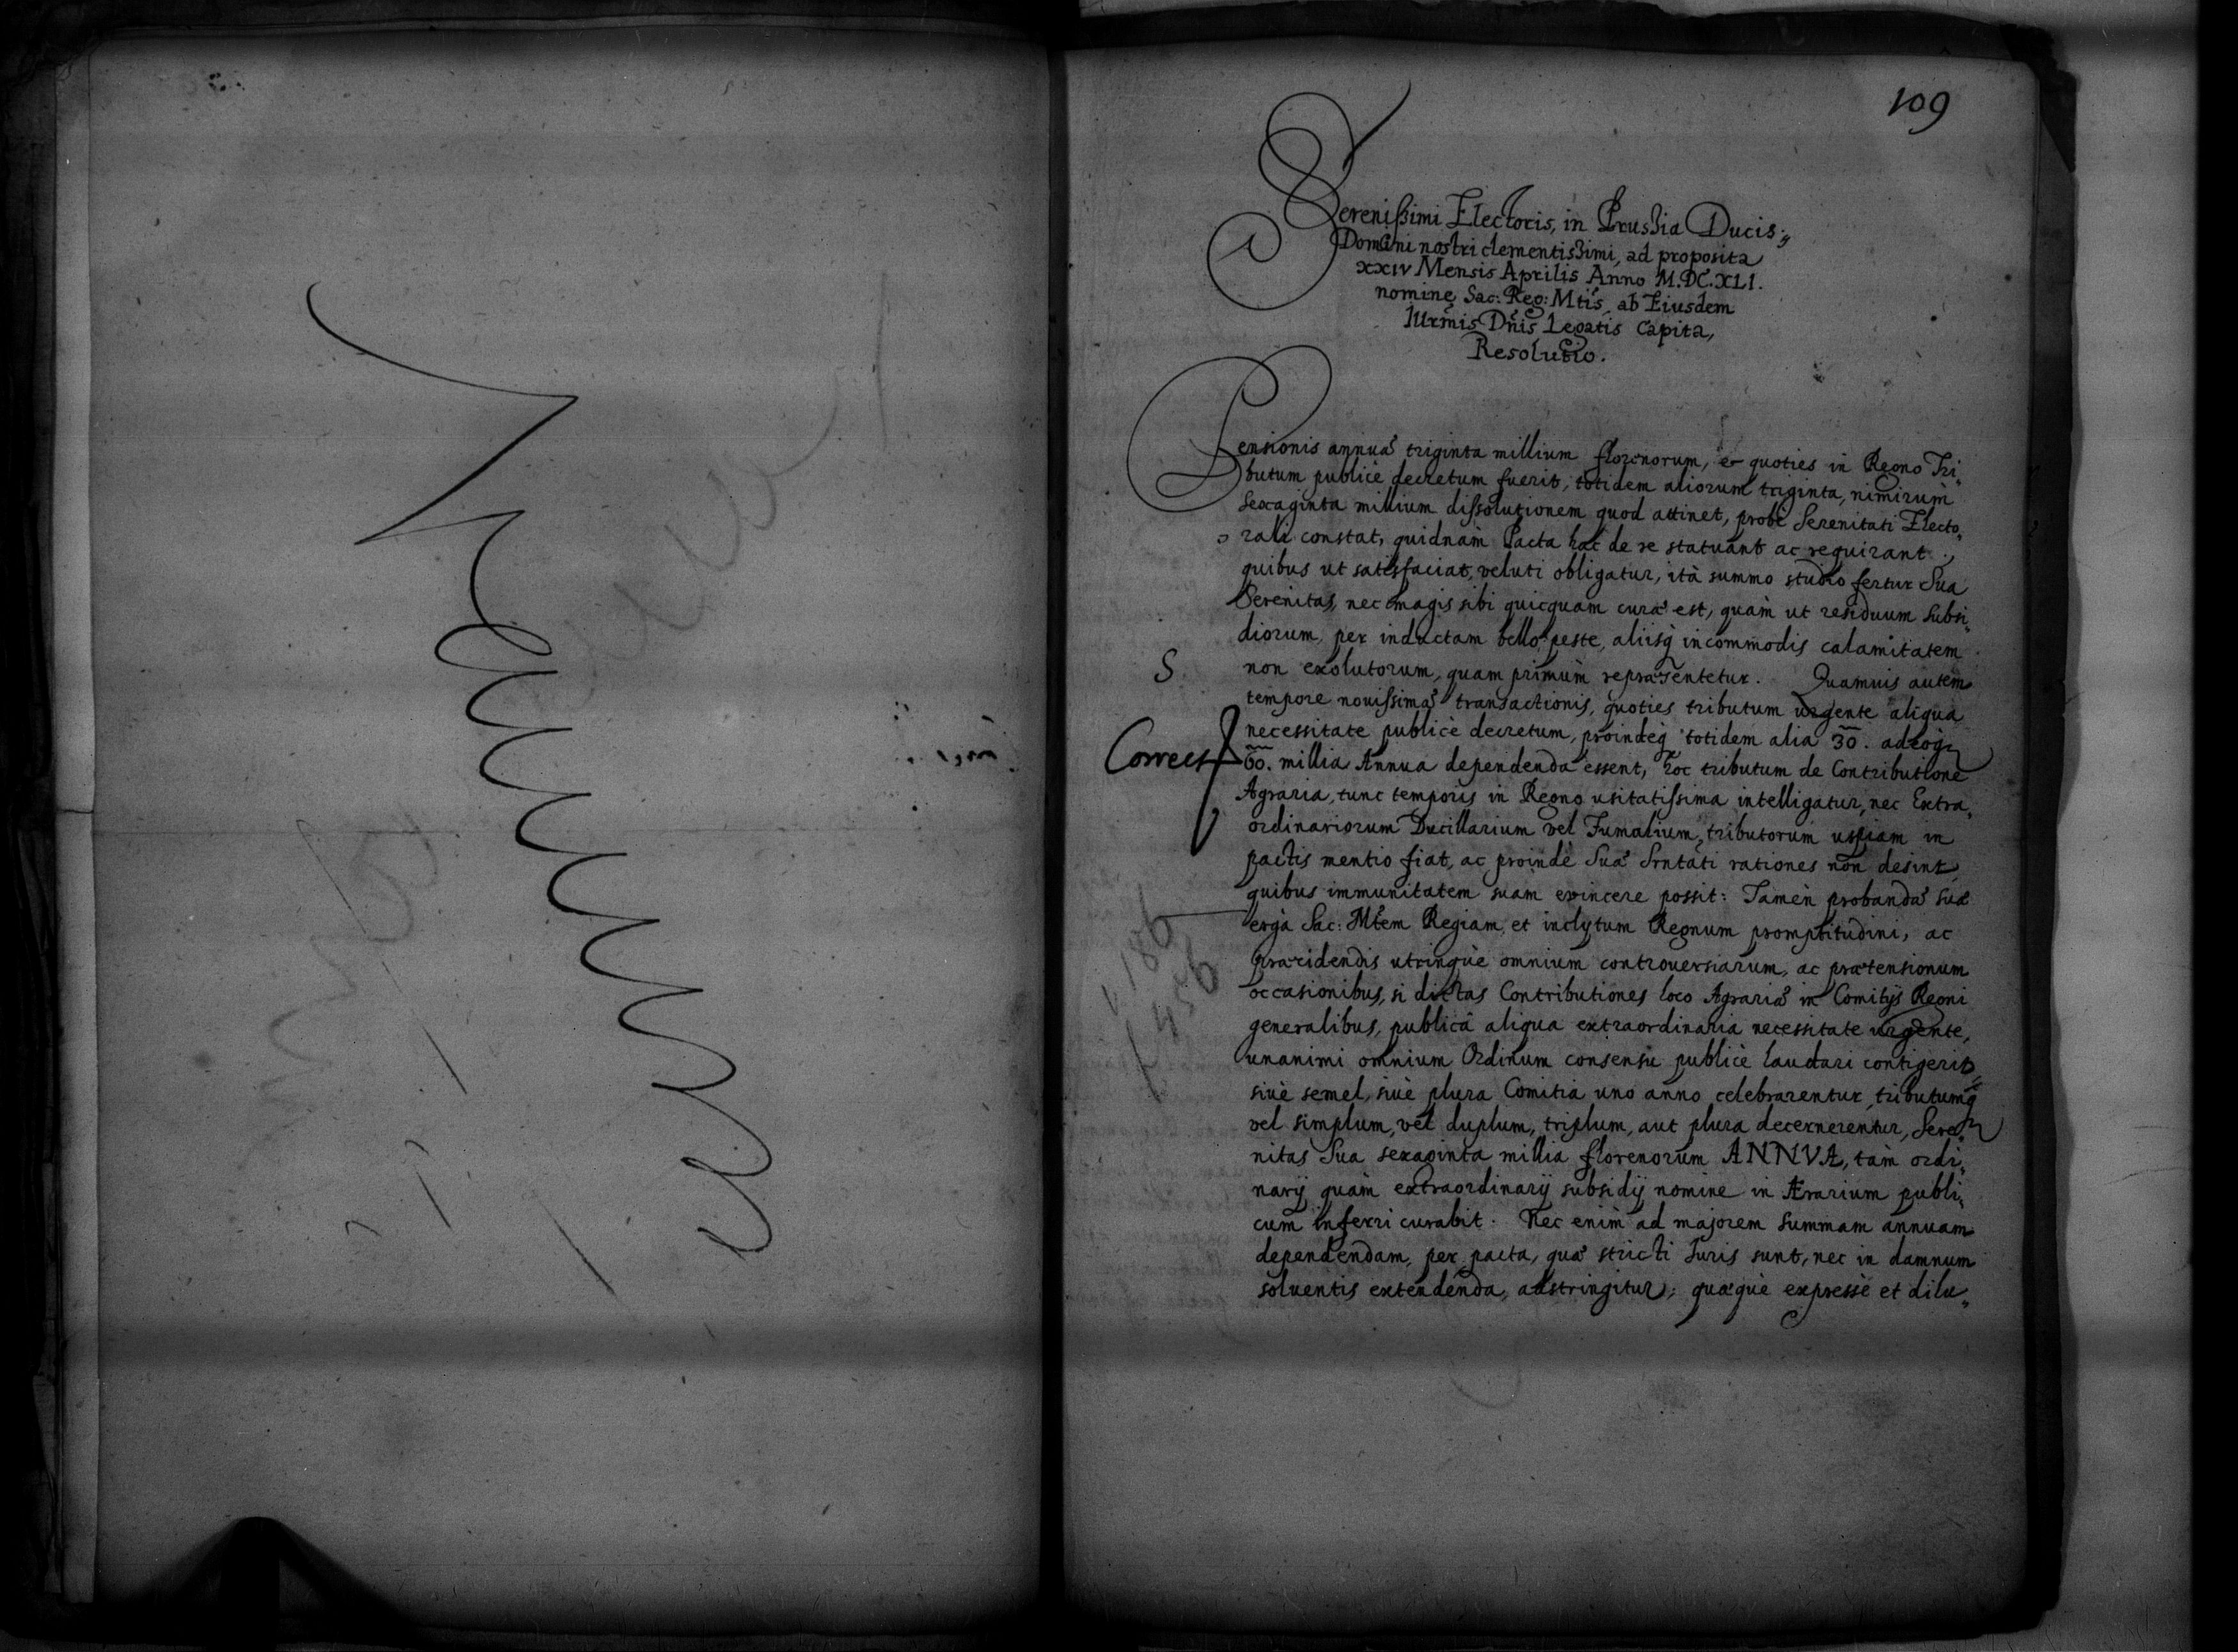 109
Serenissimi Electoris, in Prussia Ducis,
Domini nostri clementissimi, ad proposita
XXIV Mensis Aprilis Anno M.DC.XLI.
nomine Sac: Reg: Mtis, ab Eiusdem
Illrmis Dnis Legatis Capita,
Resolutio.
Pensionis annuæ triginta millium florenorum, & quoties in Regno Tri„
butum publicè decretum fuerit, totidem aliorum triginta, nimirum
sexaginta millium dissolutionem quod attinet, probè Serenitati Electo„
rali constat, quidnàm Pacta hac de re statuant ac requirant.,
quibus ut satisfaciat, veluti obligatur, ità summo studio fertur Sua
Serenitas, nec magis sibi quicquam curæ est, quàm ut residuum subsi„
diorum, per inductam bello, peste, aliisq incommodis calamitatem
S. non exolutorum, quam primùm repræsentetur. Quamuis autem
tempore novissimæ transactionis, quoties tributum urgente aliqua
necessitate publicè decretum, proindeq totidem alia 30. adeoq
Correct 60. millia Annua dependenda essent, hoc tributum de Contributione
Agraria, tunc temporis in Regno usitatissima intelligatur, nec Extra„
ordinariorum Ducillarium vel Fumalium, tributorum uspiam in
pactis mentio fiat, ac proindè Suæ Srntati rationes non desint,
quibus immunitatem suam evincere possit: Tamèn probandæ suæ
ergà Sac: Mtem Regiam, et inclytum Regnum promptitudini, ac
præcidendis utrinquè omnium controversiarum, ac prætensionum
occasionibus, si dictas Contributiones loco Agrariæ in Comitijs Regni
generalibus, publicâ aliqua extraordinaria necessitate urgente,
unanimi omnium Ordinum consensu publicè laudari contigerit,
sivè semel, sivè plura Comitia uno anno celebrarentur, tributumq
vel simplum, vel duplum, triplum, aut plura decernerentur, Sere„
nitas Sua sexaginta millia florenorum ANNVA, tàm ordi„
narij quàm extraordinarij subsidij nomine in Ærarium publi„
cum inferri curabit. Nec enim ad majorem summam annuam
dependendam, per pacta, quæ stricti Juris sunt, nec in damnum
solventis extendenda, adstringitur; quæquè expressè et dilu„